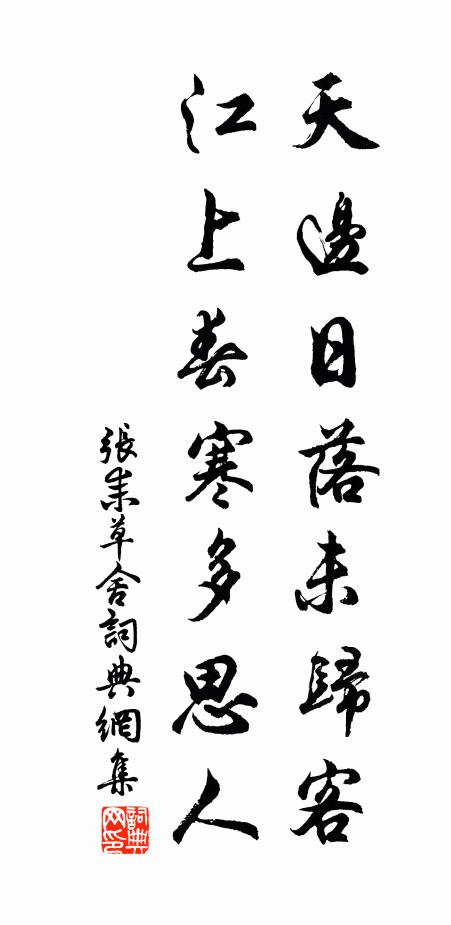 天邊日落未歸客
江上春寒多思人
張耒草舍詞典網集
詞典網印